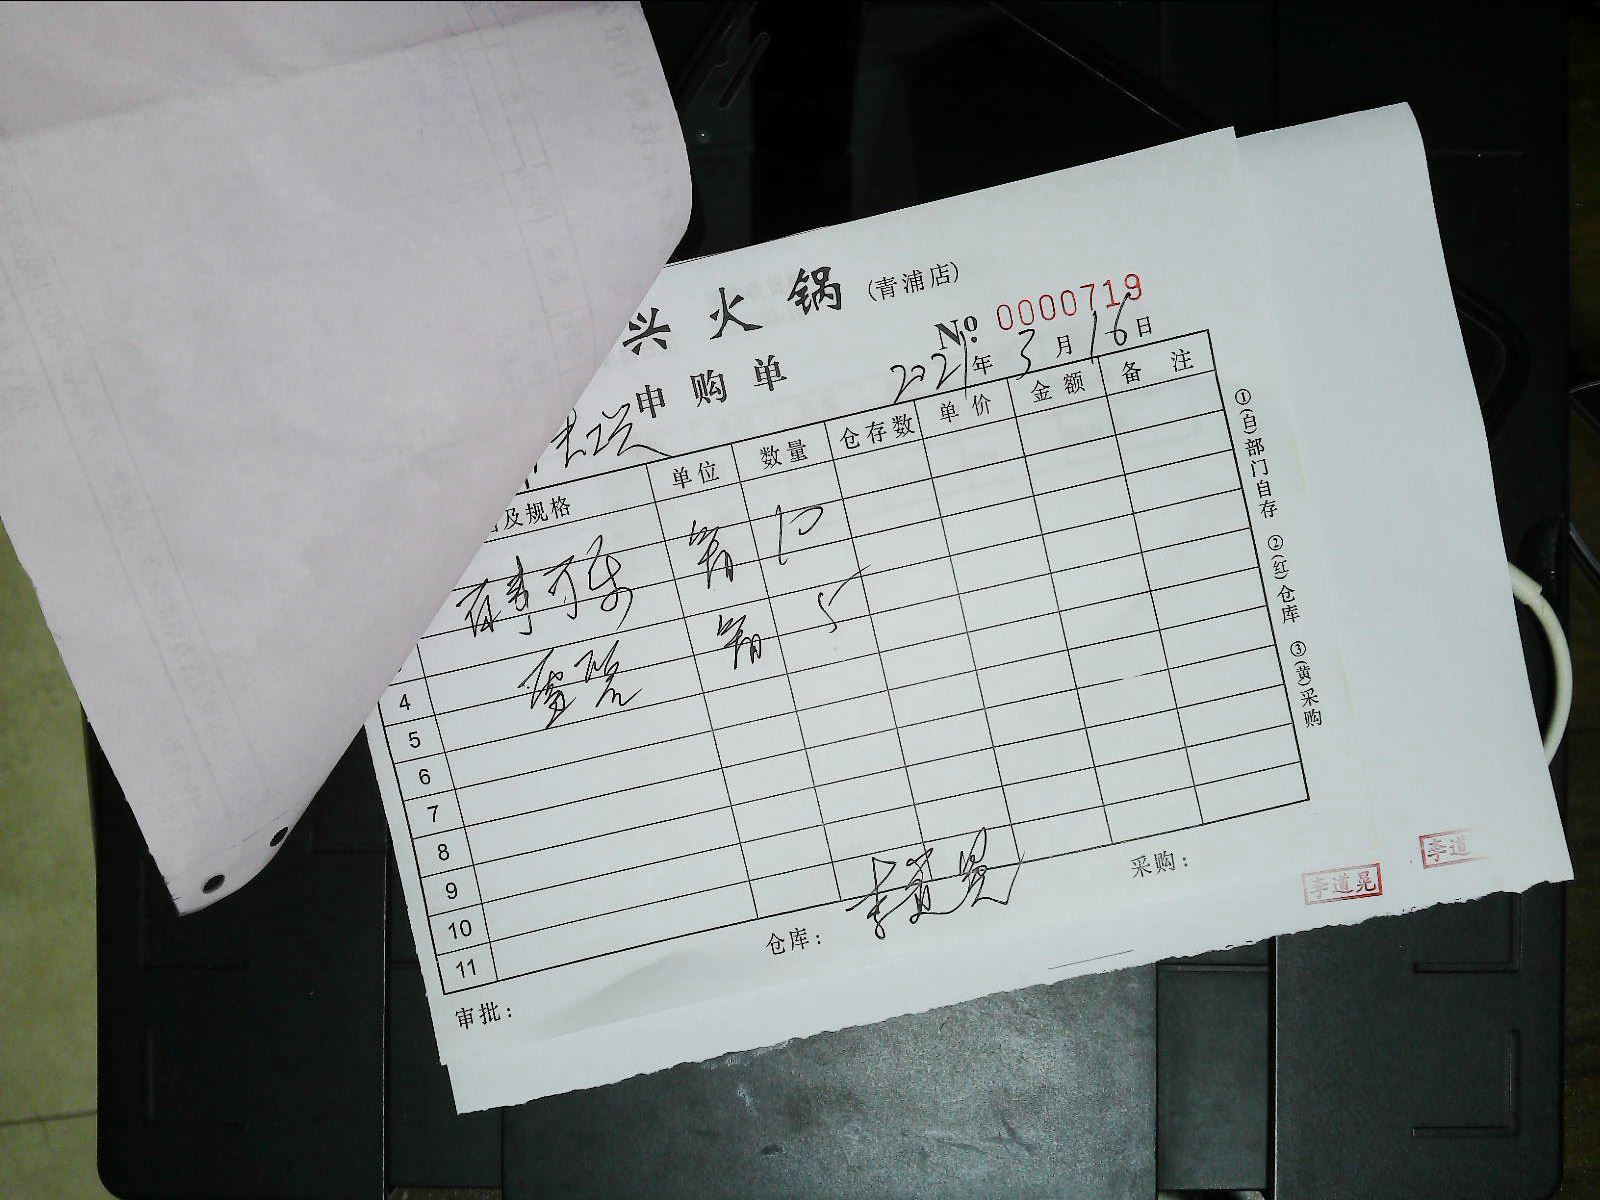 兴火锅(青浦店)
№ 0000719
申购单
2021年3月16日
及规格 单位 数量 仓存数 单价 金额 备注
百事可乐 箱 10
雪碧 箱 5
4
5
6
7
8
9
10
11
审批： 仓库：李道晃 采购：
①(白)部门自存 ②(红)仓库 ③(黄)采购
李道晃
李道